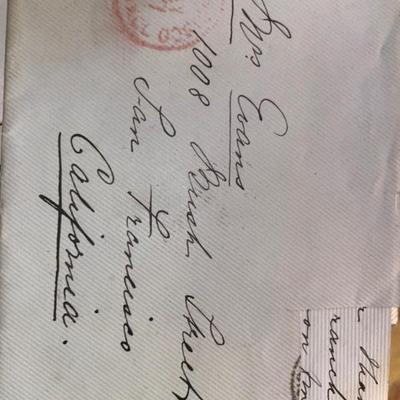 Mrs Evans
1008 Bush Street
San Francisco
California.